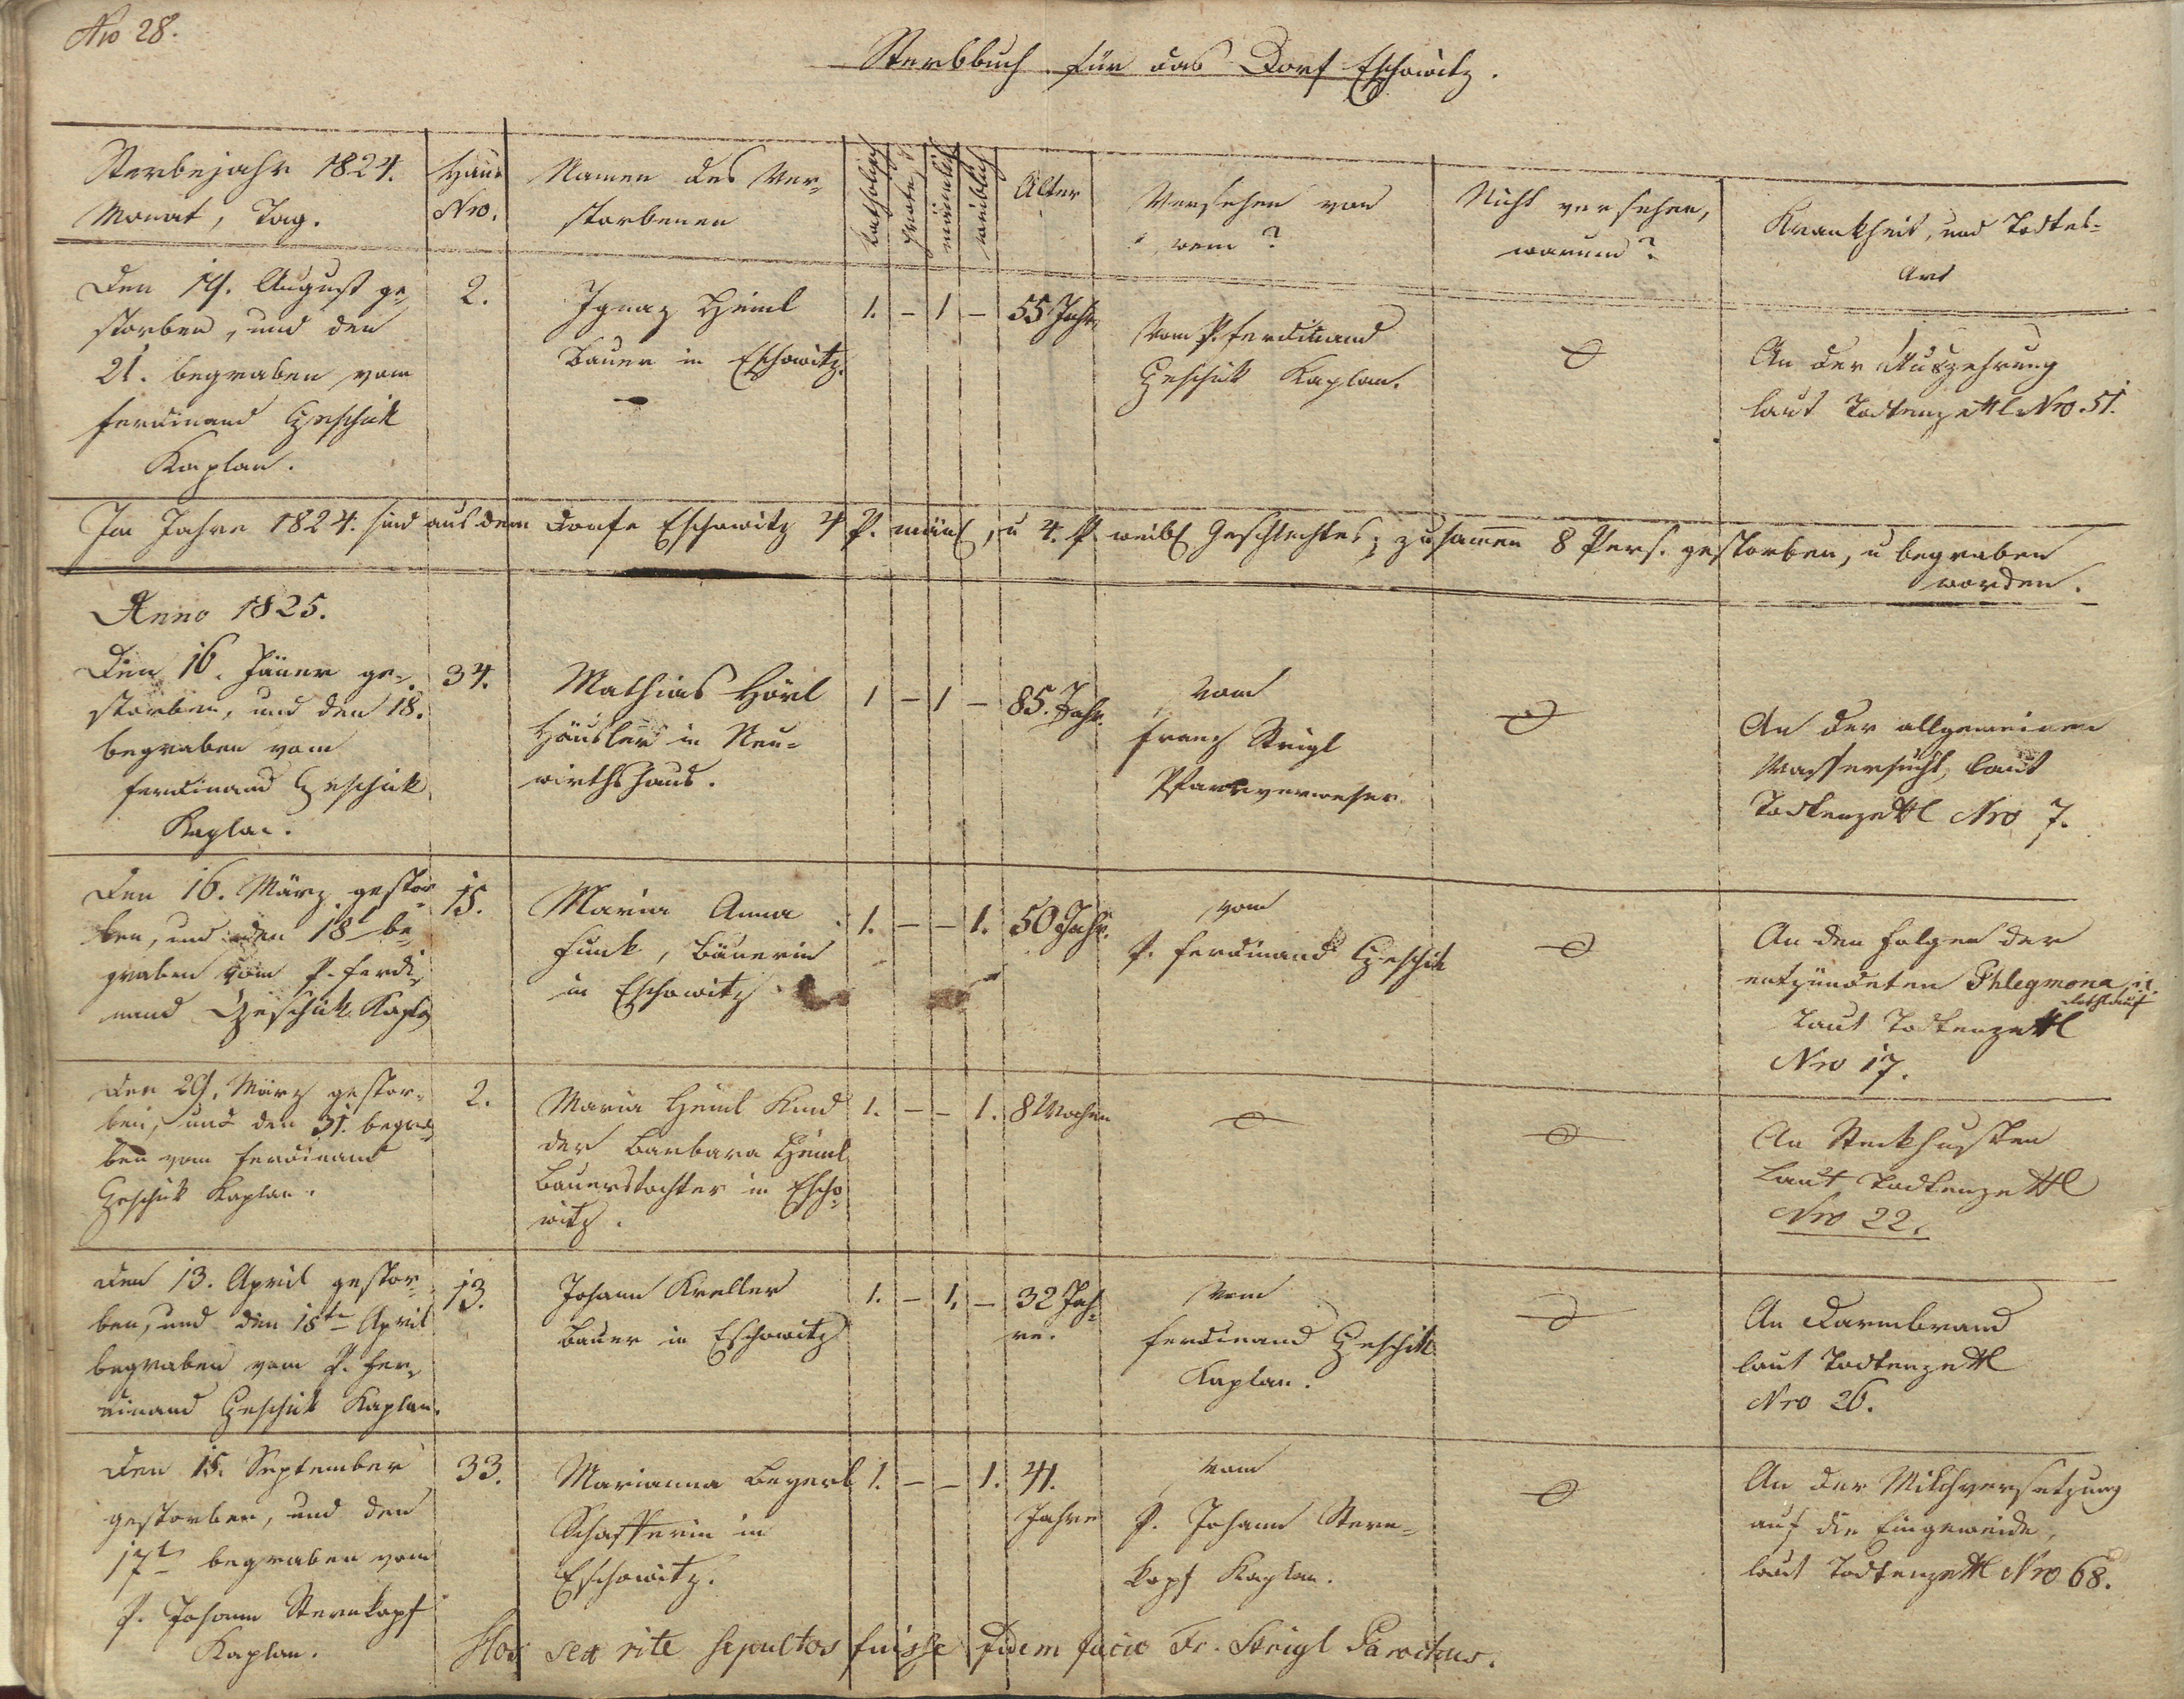 Nro 28.
Sterbbuch für das Dorf Eschowitz.
Sterbejahr 1824.
Monat, Tag.
Haus
Nro.
Namen des Ver-
storbenen
katholisch
männlich
weiblich
Alter
Versehen von
wem?
Nicht versehen,
warum?
Krankheit, und Todtes-
Art
Den 19. August ge-
storben, und den
21. begraben vom
Ferdinand Geschik
Kaplan.
2.
Ignaz Heinl
Bauer in Eschowitz.
1. - 1 -
55 Jahr
Vom P. Ferdinand
Geschik Kaplan.
An der Auszehrung
laut Todtenzettl Nro. 51.
Im Jahre 1824. sind aus dem Dorfe Eschowitz 4 P. mänl, u 4. P. weibl Geschlechtes; zusamen 8 Pers. gestorben, u begraben
worden.
Anno 1825.
Den 16. Jäner ge-
storben, und den 18.
begraben vom
Ferdinand Geschik
Kaplan.
34.
Mathias Hörl
Häusler in Neu-
wirthshaus.
1 - 1 -
85. Jahr
Vom
Franz Strigl
Pfarrverweser.
An der allgemeinen
Wassersucht, laut
Todtenzettl Nro 7.
Den 16. März gestor-
ben, und den 18t be-
graben vom P. Ferdi-
nand Geschik Kapl
15.
Maria Anna
Funk, Bäuerin
in Eschowitz.
1. - - 1.
50 Jahr.
vom
P. Ferdinand Geschik
An den Folgen der
entzündeten Phlegmona
laut Todtenzettl
Nro 17.
Den 29. März gestor-
ben, und den 31. begra-
ben vom Ferdinand
Geschik Kaplan.
2.
Maria Heinl Kind
der Barbara Heinl
Bauerstochter in Escho-
witz.
1. - - 1.
8 Wochen
An Steckhusten
laut Todtenzettl
Nro 22.
Den 13. April gestor-
ben, und den 15ten April
begraben vom P. Fer-
dinand Geschik Kaplan.
13.
Johann Kreller
Bauer in Eschowitz
1. - 1. -
32 Jah-
re.
Vom
Ferdinand Geschik
Kaplan.
An Darmbrand
laut Todtenzettl
Nro 26.
Den 15. September
gestorben, und den
17t begraben vom
P. Johann Sternkopf
Kaplan.
33.
Marianna Beyerl
Schafferin in
Eschowitz.
1. - - 1.
41.
Jahre
Vom
P. Johann Stern-
kopf Kaplan.
An der Milchversetzung
auf die Eingeweide,
laut Todtenzettl Nro 68.
Hos sex rite sepultos fuisse fidem facio Fr. Strigl Parochus.